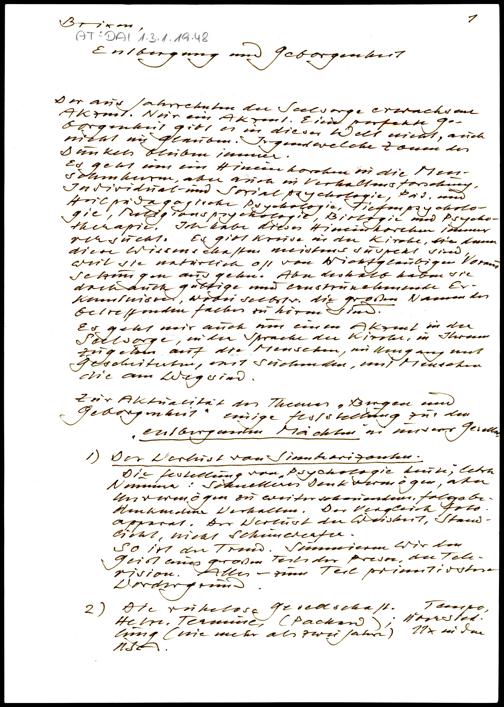 Brixen,
1
AT:DAI 1.3.1.19.48
Entbergung und Geborgenheit
Der aus Jahrzehnten der Seelsorge erwachsene
Akzent. Nur ein Akzent. Eine perfekte Ge-
borgenheit gibt es in dieser Welt nicht, auch
nicht im Glauben. Irgendwelche Zonen des
Dunkels bleiben immer.
Es geht um ein Hineinhorchen in die Men-
aber auch in Verhaltensforschung,
Individual- und Sozialpsychologie, Päd. und
Heilpädagogische Psychologie, Tiefenpsycholo-
gie, Religionspsychologie, Biologie und Psycho-
therapie. Ich habe dieses Hineinhorchen immer
versucht. Es gibt Kreise in der Kirche, die denen
diese Wissenschaften meistens suspekt sind
weil sie natürlich oft von nichtgläubigen Voraus
setzungen ausgehen. Aber deshalb haben sie
doch auch gültige und ernstzunehmende Er-
kenntnisse, die großen Namen des
betreffenden Faches
Es geht mir auch um einen Akzent in der
Seelsorge, in der Sprache der Kirche, in ihrem
zugehen auf die Menschen, im Umgang mit
Gescheiterten, mit Suchenden, mit Menschen
die am Weg sind.
Zur Aktualität des Themas „Bergen und
Geborgenheit" einige Feststellung zu den
„entbergenden Mächten" in unserer Gesells
1) Der Verlust von Sinnhorizonten.
Die Feststellung von „Psychologie heute", letzte
Nummer: Schnelleres Denkvermögen, aber
Unvermögen zu
Verhalten. Der Vergleich Foto
apparat. Der Verlust der Weisheit,
licht, nicht
So ist der Trend. Summieren wir den
Geist eines großen Teils der Presse, der Tele-
vision. Alles – zum Teil primitivster
Vordergrund.
2) Die ruhelose Gesellschaft. Tempo,
Hetze, Termine, (Packard),
lung (nie mehr als zwei Jahre) 11x in den
USA.